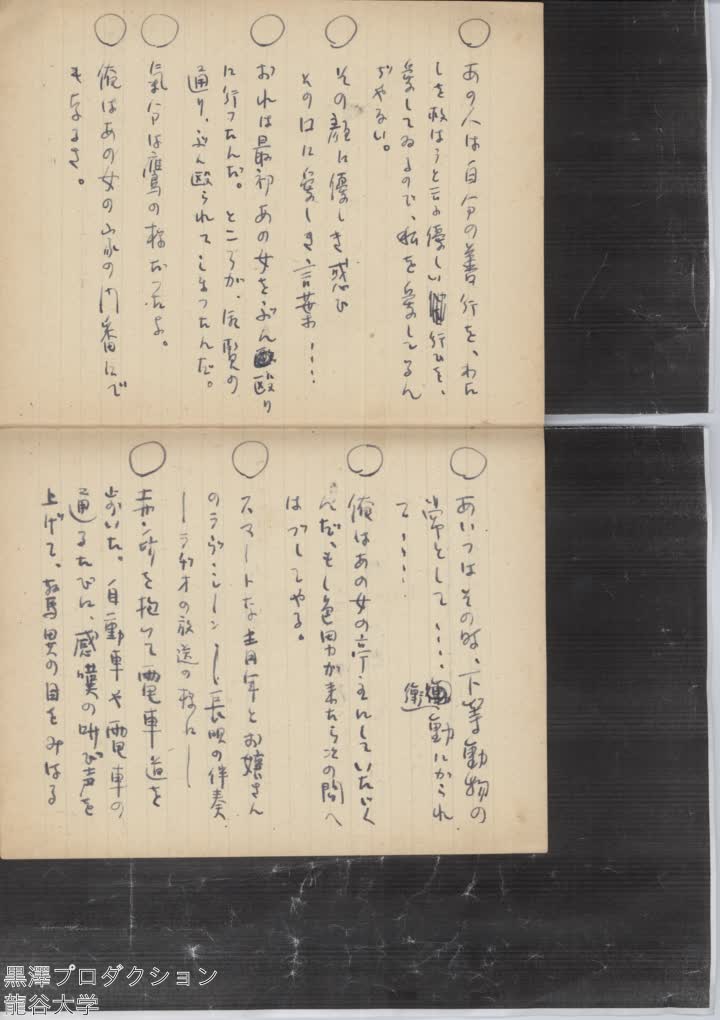 ○
あの人は自分の善行を、わた
しを救はうと云ふ優しい行ひを、
愛してゐるので、私を愛してるん
ぢやない。
○
その顔に優しき感じ
その口に優しき言葉・・・・
○
おれは最初あの女をぶん殴り
に行つたんだ。ところが、后賢の
通り、ぶん殴られてしまつたんだ。
○
氣分は鷹の様だつたよ。
○
俺はあの女の家の門番にで
もなるさ。
○
あいつはその時、下等動物の
常として・・・・衝動にかられ
て・・・・
○
俺はあの女の亭主にしていたゞく
んだ、もし色男が来たら次の間へ
はづしてやる。
○
スマートな青年とお嬢さん
のラヴ・シーン―長唄の伴奏
―ラヂオの放送の様に―
○
赤ン坊を抱いて電車道を
歩いた。自動車や電車の
通るたびに、感嘆の叫び声を
上げて、驚異の目をみはる
黒澤プロダクション
龍谷大学